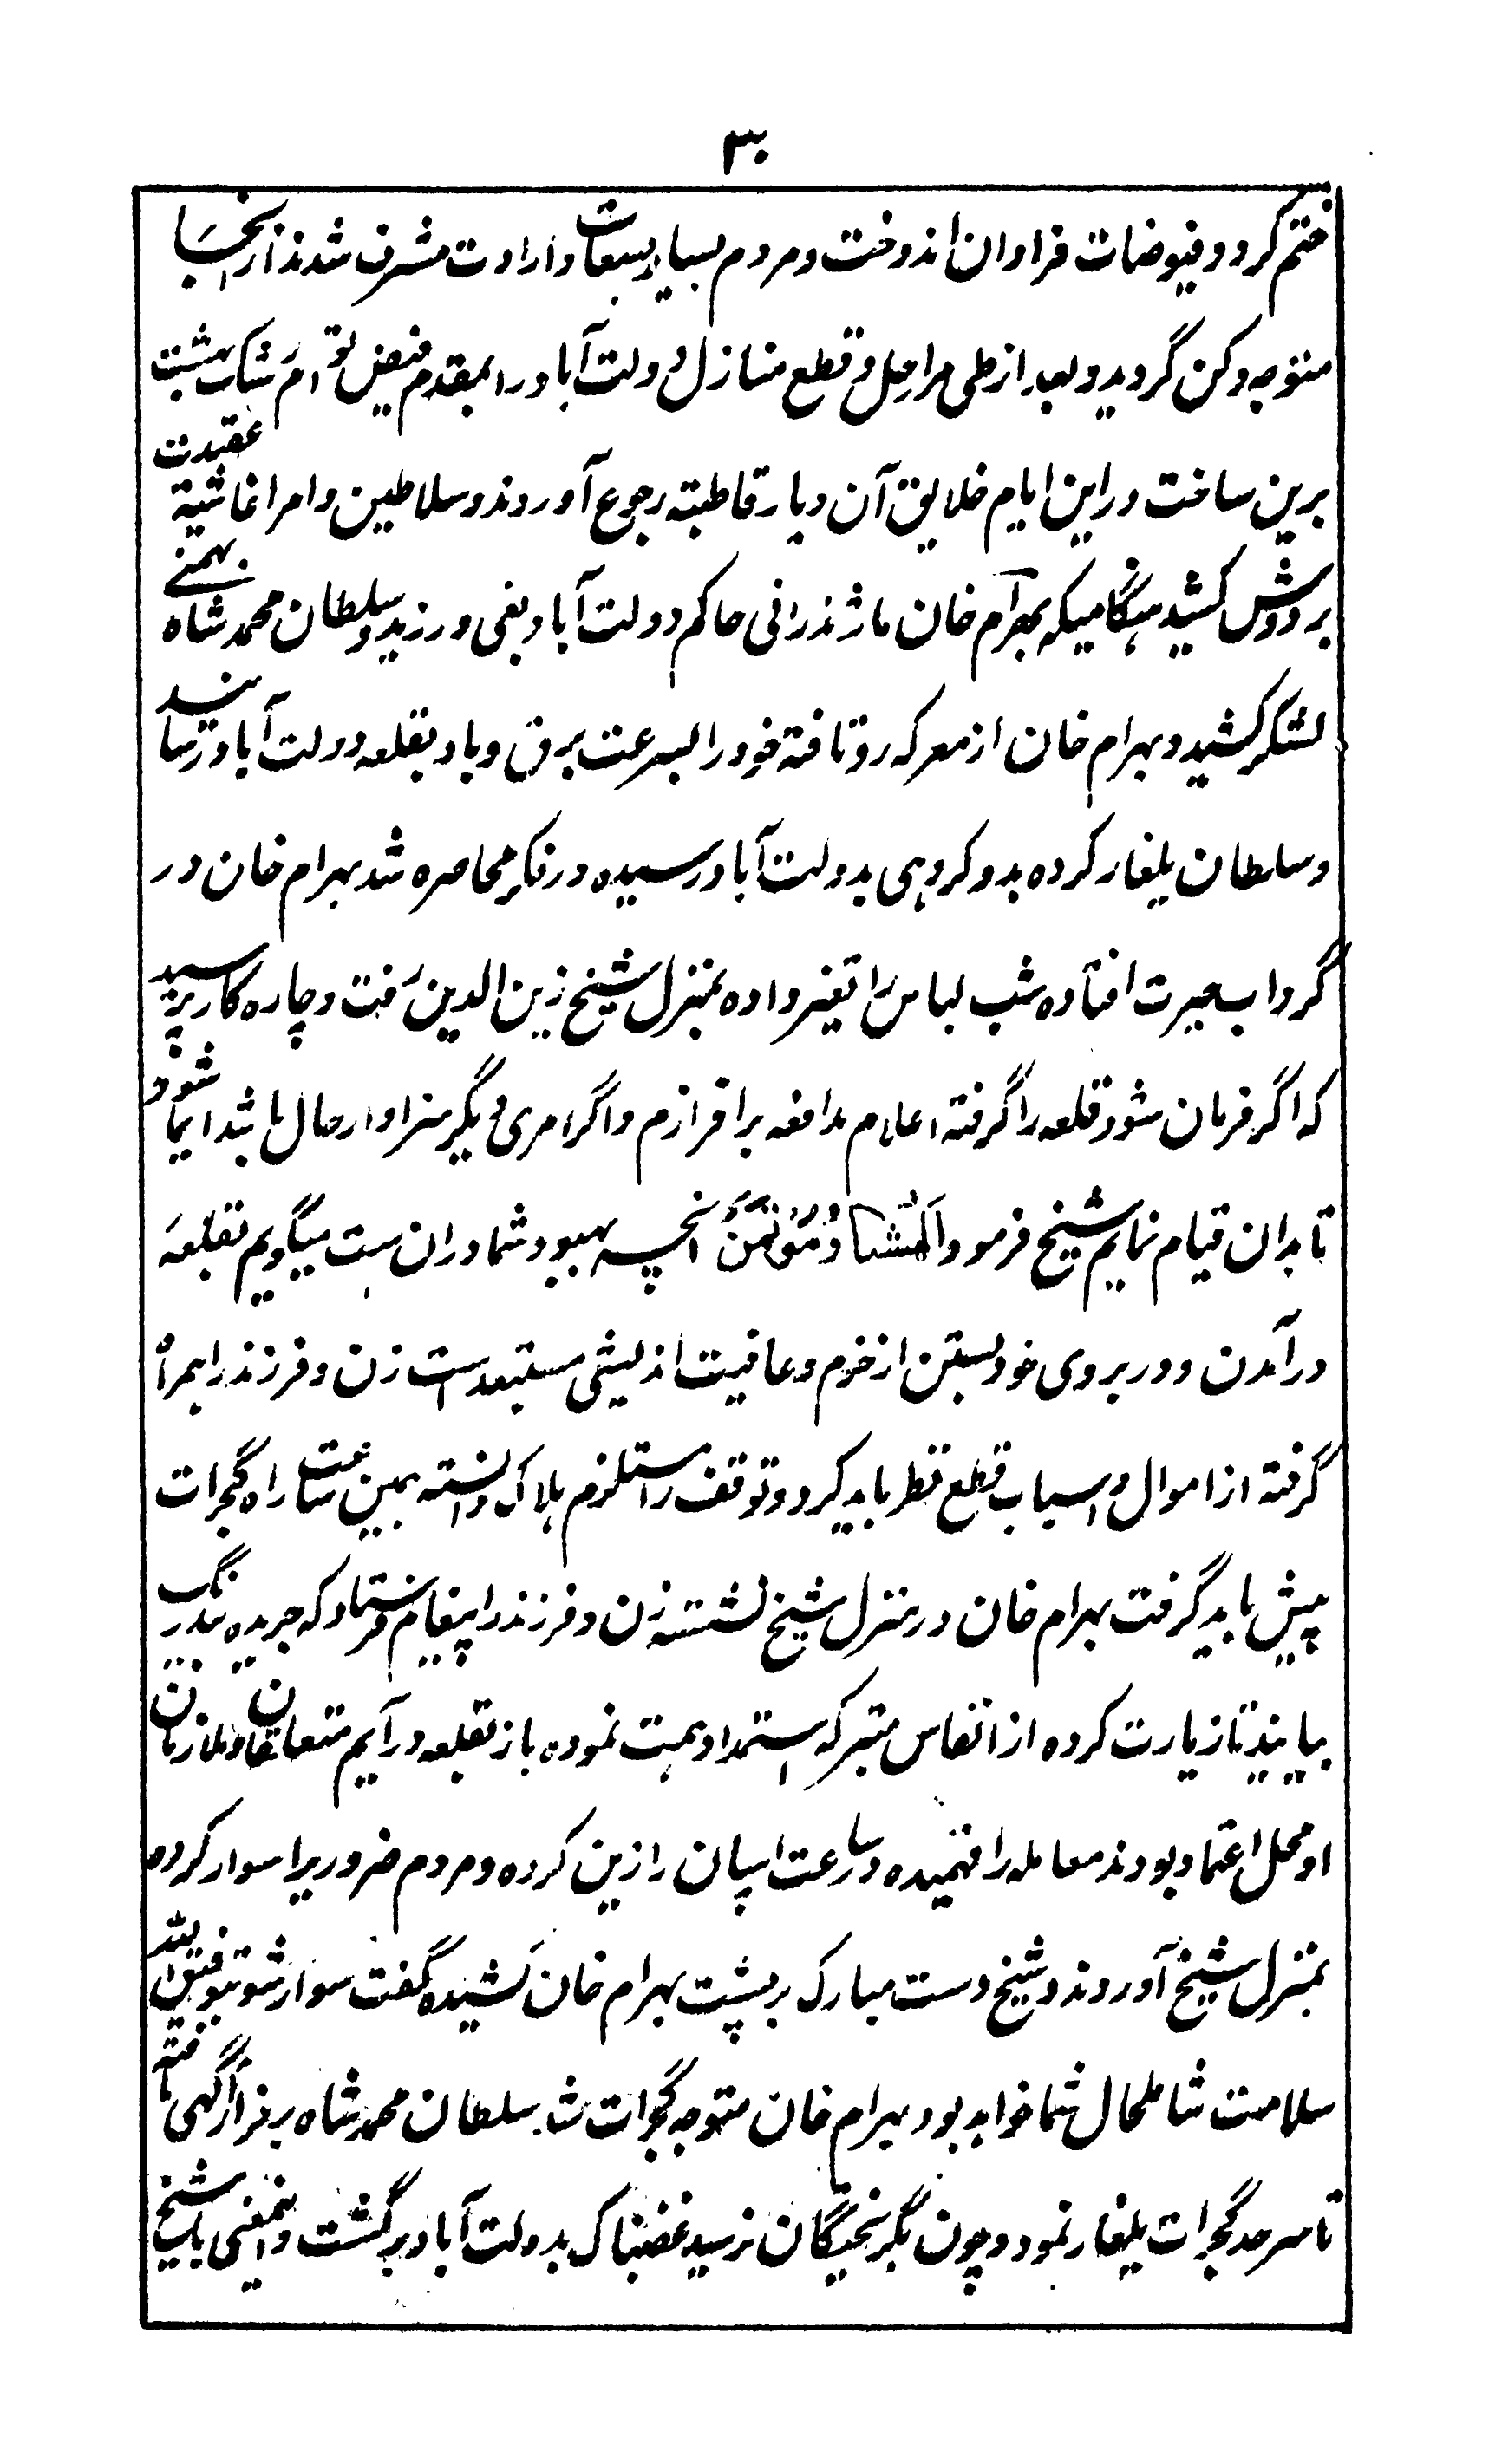 ۳۰
ختم کرد و فیوضات فراوان اندوخت و مردم بسیار بسعادت ارادت مشرف شدند از انجا
متوجه دکن گردید و بعد از طی مراحل و قطع منازل دولت آباد را بمقدم فیض توام رشک بهشت
برین ساخت درین ایام خلایق آن دیار قاطبته رجوع آوردند و سلاطین و امرا غاشیهٔ عقیدت
بر دوش کشید هنگامیکه بهرام خان ماژندرانی حاکم دولت آباد بغی ورزید و سلطان محمد شاه بهمنی
لشکر کشید و بهرام خان از معرکه روتافته خود را بسرعت برق و باد بقلعه دولت آباد رسانید
و سلطان یلغار کرده بدو کروهی بدولت آباد رسیده در فکر محاصره شد بهرام خان در
گرداب حیرت افتاده شب لباس را تغیر داده بمنزل شیخ زین الدین رفت و چاره کار پرسید
که اگر فرمان شود قلعه را گرفته اعلام مدافعه برافرازم و اگر امری دیگر سزاوار حال باشد ایما شود
تا بدان قیام نمایم شیخ فرمود المستشار مؤتمن انچه بهبود شما دران هست میگویم بقلعه
درآمدن و در بروی خود بستن از حزم و عافیت اندیشی مستبعد است زن و فرزند را همراه
گرفته از اموال و اسباب قطع نظر باید کرد و توقف را مستلزم هلاک دانسته بهمین ساعت راه گجرات
پیش باید گرفت بهرام خان در منزل شیخ نشسته زن و فرزند را پیغام فرستاد که جریده بیدرنگ
بیایند تا زیارت کرده از انفاس متبرکه استمداد همت نموده باز بقلعه درآیم متعلقان و ملازمان
او محل اعتماد بودند معامله را فهمیده و بسارعت اسپان را زین کرده و مردم ضروریرا سوار کرده
بمنزل شیخ آوردند و شیخ دست مبارک بر پشت بهرام خان کشیده گفت سوار شو بتوفیق الله
سلامت شامل حال شما خواهد بود بهرام خان متوجه گجرات شد سلطان محمد شاه برفرار آگهی یافته
تا سرحد گجرات یلغار نمود و چون بگریختگان نرسید غضبناک بدولت آباد برگشت و اینمعنی با شیخ